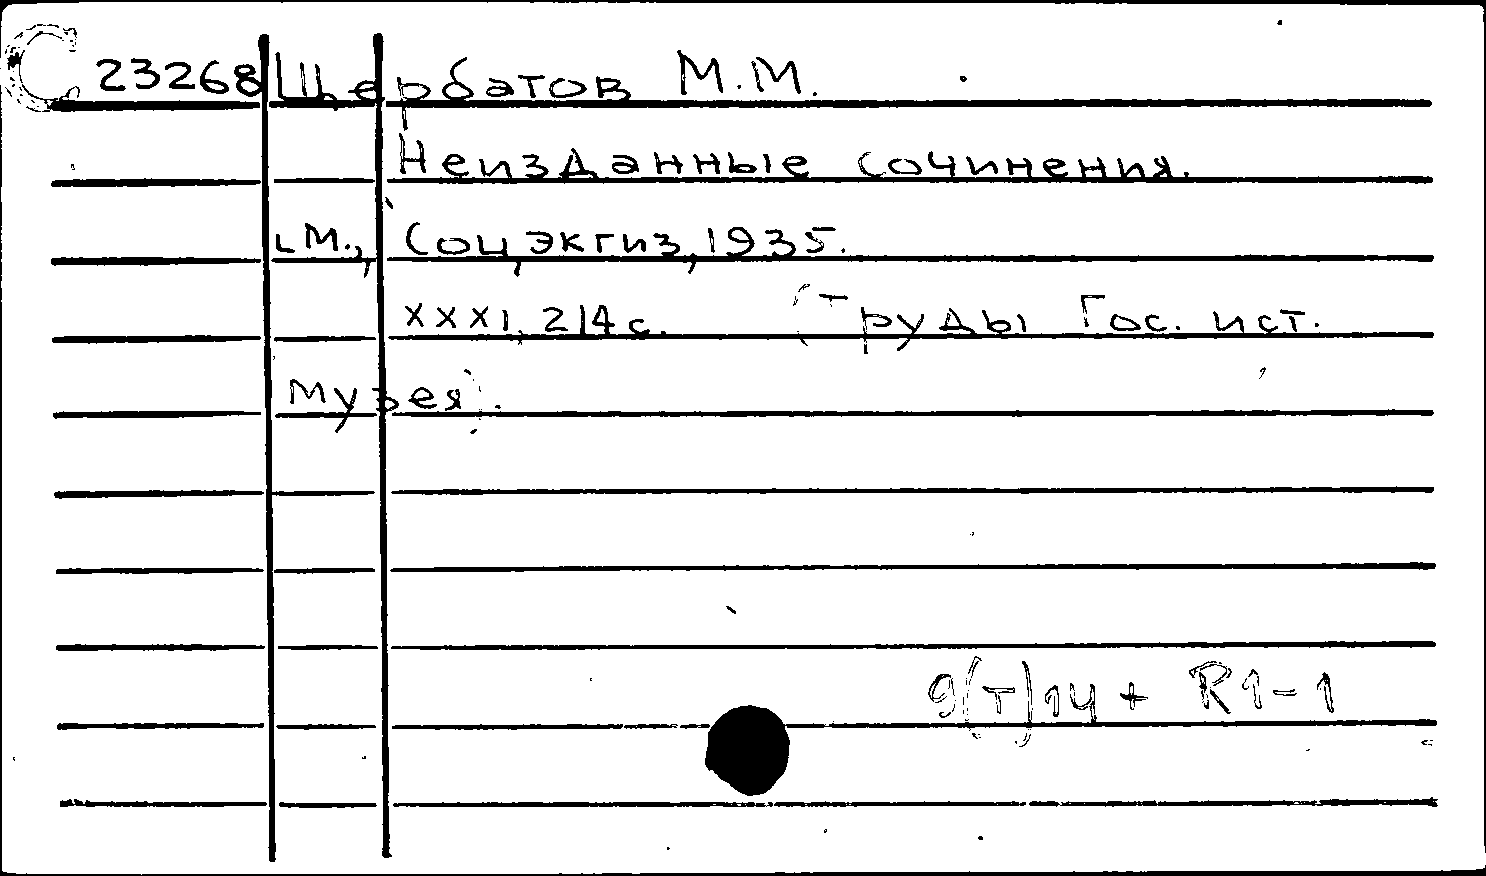 С 23268 Щербатов М.М.
Неизданные сочинения.
М., Соцэкгиз, 1935.
XXXI, 214 с. (Труды Гос. ист.
музея).
9(Т)14 + R1-1